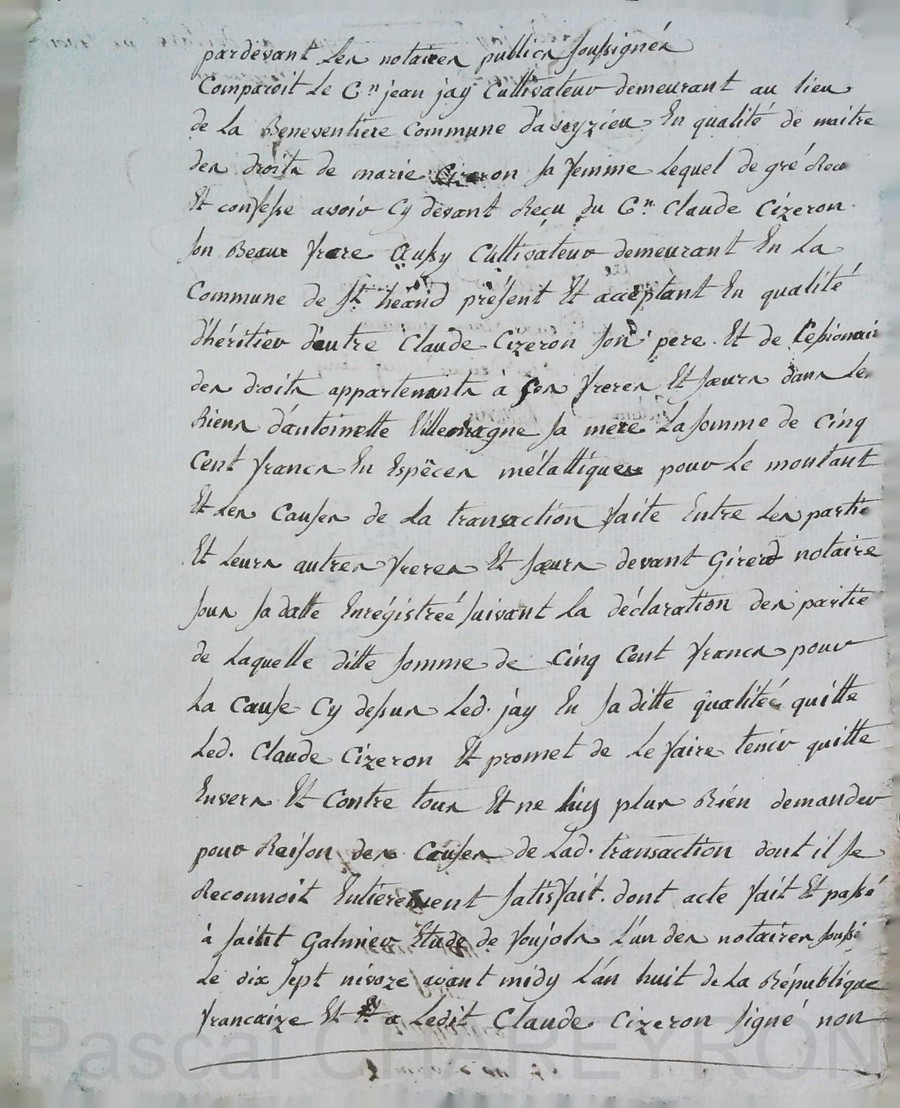 pardevant Les notaires publics soussignés
Comparoit Le Cn jean jay Cultivateur demeurant au lieu
de La Beneventiere Commune d'aveyzieu En qualité de maitre
des droits de marie Cizeron sa femme Lequel de gré
Et confesse avoir Cy devant Reçu du Cn Claude Cizeron
son Beaux frere Aussy Cultivateur demeurant En La
Commune de St heand présent Et acceptant En qualité
d'héritier d'autre Claude Cizeron son pere Et de
des droits appartenants à ses freres Et sœurs dans Les
Biens d'antoinette Villemagne sa mere La somme de Cinq
Cent francs En Espèces métalliques pour Le montant
Et Les Causes de La transaction faite Entre Les partie
Et Leurs autres freres Et sœurs devant Girerd notaire
sous sa datte Enregistreé suivant La déclaration des partie
de Laquelle ditte somme de Cinq Cent francs pour
La Cause Cy dessus Led. jay En sa ditte qualiteé quitte
Led. Claude Cizeron Et promet de Le faire tenir quitte
Envers Et Contre tous Et ne luy plus Rien demander
pour Reison des Causes de Lad. transaction dont il se
Reconnoit Entierement satisfait. dont acte fait Et passé
à saint Galmier Etude de foujols L'un des notaires soussi
Le dix sept nivoze avant midy L'an huit de La République
francaize Et a Ledit Claude Cizeron signé non
Pascal CHAPEYRON